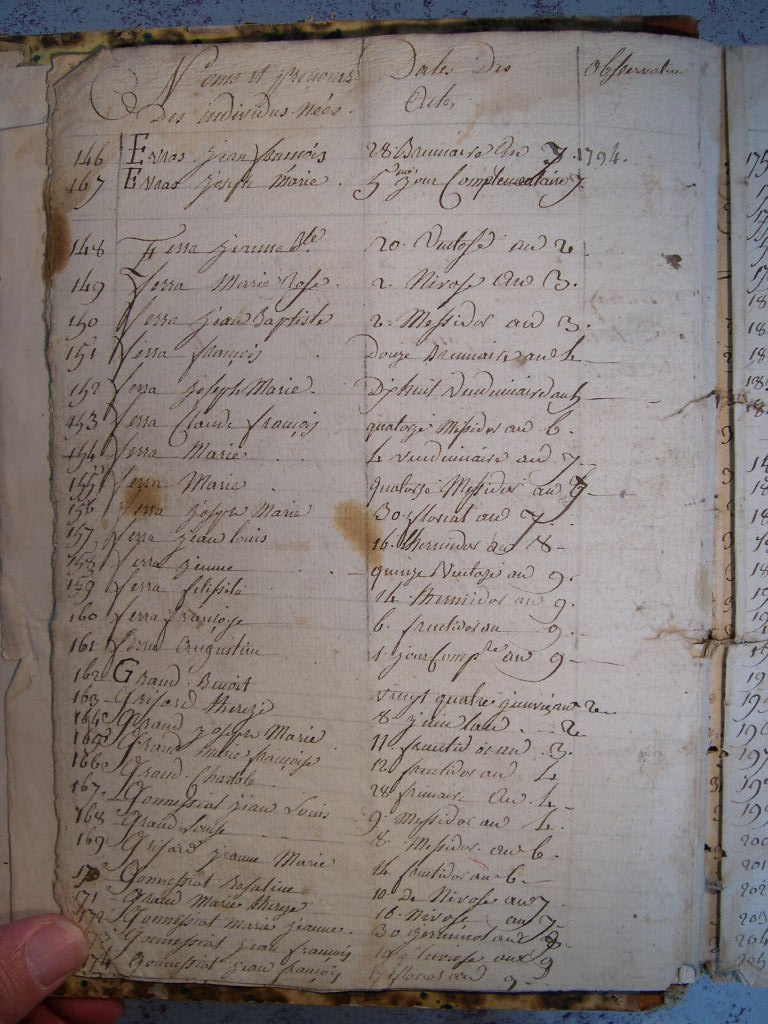 Noms et prenoms Dates des Observation
Des individus nées. Actes
146 Evras jean françois 28 Brumaire an 7 1794.
167 Evras joseph Marie. 5eme jour Complementaire 7.
148 Ferra jeanne 20. Ventose an 2.
149 Ferra Marie Rose. 2. Nivose an 3.
150 Ferra jean Baptiste 2. Messidor an 3.
151 Ferra françois Douze Brumaire an 4
152 Ferra joseph Marie. Dixhuit vendimiaire an 5
153 Ferra Claude françois quatorze Messidor an 6.
154 Ferra Marie 4 vendimiaire an 7.
155 Ferra Marie quatorze Messidor an 7
156 Ferra joseph Marie 30 floreal an 7.
157 Ferra jean louis 16. thermidor an 8
158 Ferra jeanne quinze Ventose an 9.
159 Ferra felissité 14 thermidor an 9.
160 Ferra françoise 6. fructidor an 9.
161 Ferra Augustin 1. jour Compre an 9
162 Grand Benoit
163 Grisard thereze vingt quatre janvier an 2
164 Grand joseph Marie 8 juin an 2
165 Grand Marie françoise 11 fructidor an 3.
166 Grand Charlote 12 fructidor an 4
167. Gonnessiat jean Louis 28 frimaire an 4.
168 Grand Louise 9. Messidor an 4.
169 Grisard jeanne Marie 8. Messidor an 6.
170 Gonnessiat Rosaline 14 fructidor an 6
171 Grand Marie thereze 10 de Nivose an 7.
172 Gonnessiat marie jeanne. 16. Nivose an 7
173 Gonnessiat jean françois 30 germinal an 8
174 Gonnessiat jean françois an 9
floreal an 9.